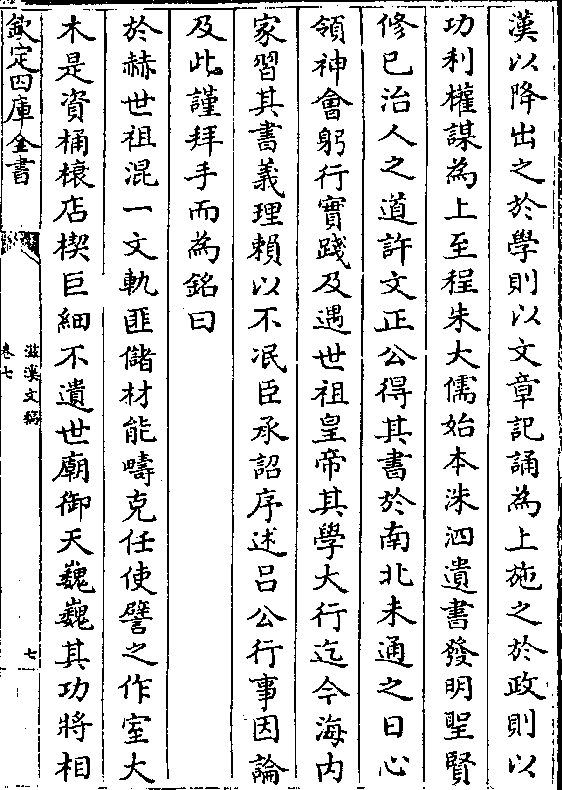 漢以降出之於學則以文章記誦為上施之於政則以
功利權謀為上至程朱大儒始本洙泗遺書發明聖賢
修已治人之道許文正公得其書於南北未通之日心
領神會躬行實踐及遇世祖皇帝其學大行迄今海内
家習其書義理賴以不泯臣承詔序述吕公行事因論
及此謹拜手而為銘曰
於赫世祖混一文軌匪儲材能疇克任使譬之作室大
木是資桷榱店楔巨細不遺世廟御天巍巍其功將相
欽定四庫全書
滋溪文稿
卷七
七